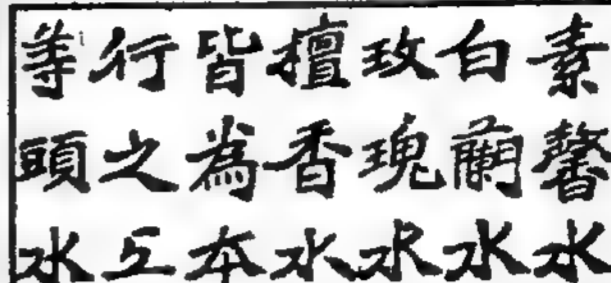 素馨水
白蘭水
玫瑰水
擅香水
皆為本
行之上
等頭水